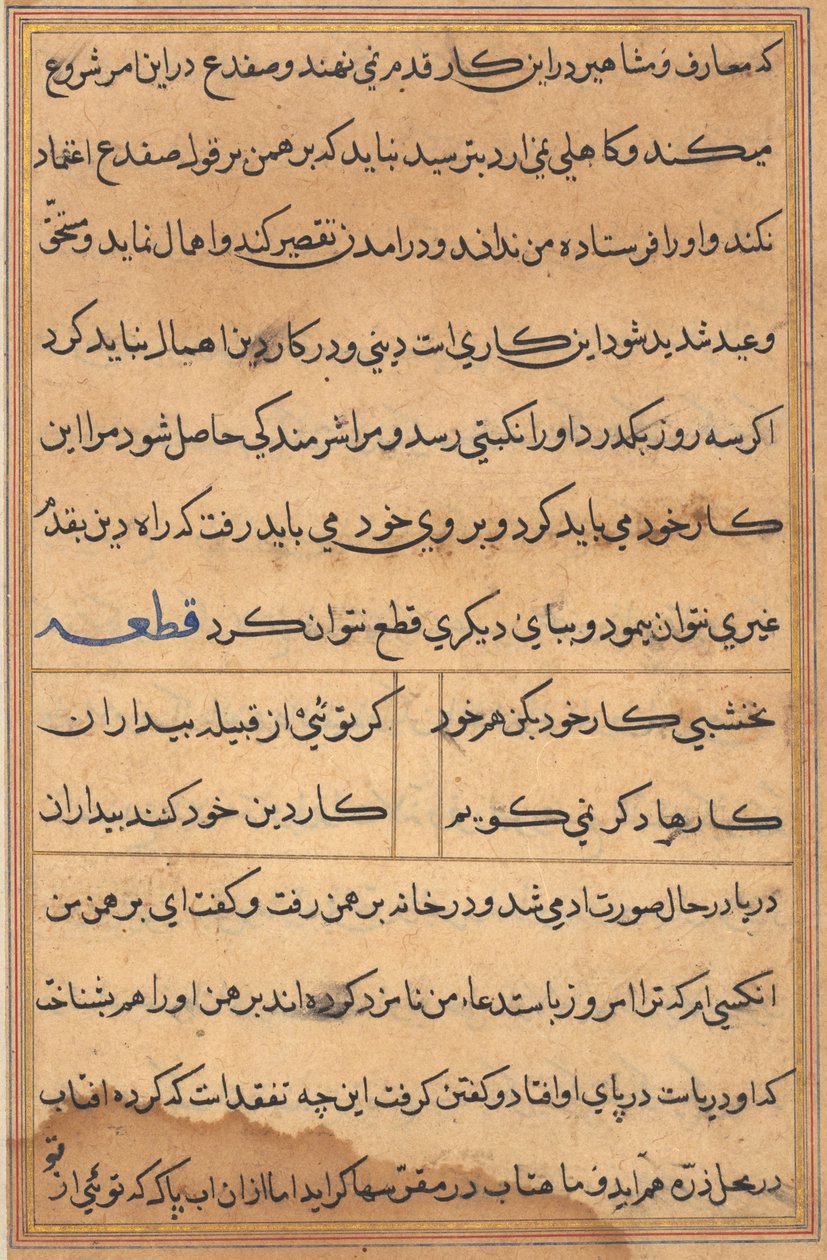 که معارف و مشاهیر در این کار قدم نمی نهند و صفدع در این امر شروع
میکند و کاهلی نمی ارد بترسید نباید که برهمن بر قول صفدع اعتماد
نکند و او را فرستاده من نداند و در امدن تقصیر کند و اهمال نماید و مستحقّ
وعید شدید شود این کاری است دینی و در کار دین اهمال نباید کرد
اکر سه روز بکدرد او را نکبتی رسد و مرا شرمندکی حاصل شود مرا این
کار خود می باید کرد و بروی خود می باید رفت که راه دین بقدم
غیری نتوان پیمود و بپای دیکری قطع نتوان کرد قطعه
نخشبی کار خود بکن هم خود
کر توئی از قبیله بیداران
کارها دکر نمی کویم
کار دین خود کنند بیداران
دریا در حال صورت ادمی شد و در خانه برهمن رفت و کفت ای برهمن من
انکسی ام که ترا امروز باستدعاء من نامزد کرده اند برهمن او را هم بشناخت
که او دریاست در پای او افتاد و کفتن کرفت این چه تفقد است که کرده افتاب
در محل ذرّه هم اید و ماهتاب در مقرّ سها کراید اما از ان اب پاک که توئی از تو